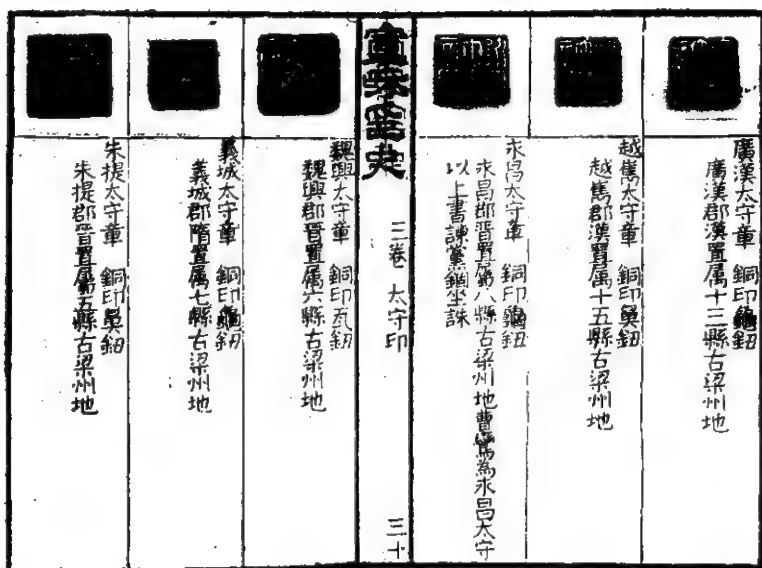 廣漢太守章 銅印龜鈕
廣漢郡漢置属十三縣古梁州地
越雟太守章 銅印鼻鈕
越雟郡漢置属十五縣古梁州地
永昌太守章 銅印龜鈕
永昌郡晉置属八縣古梁州地曹鸞為永昌太守
以上書諫黨錮坐誅
宣和印史
三卷 太守印
三十
魏興太守章 銅印瓦鈕
魏興郡晉置属六縣古梁州地
義城太守章 銅印龜鈕
義城郡隋置属七縣古梁州地
朱提太守章 銅印鼻鈕
朱提郡晉置属五縣古梁州地